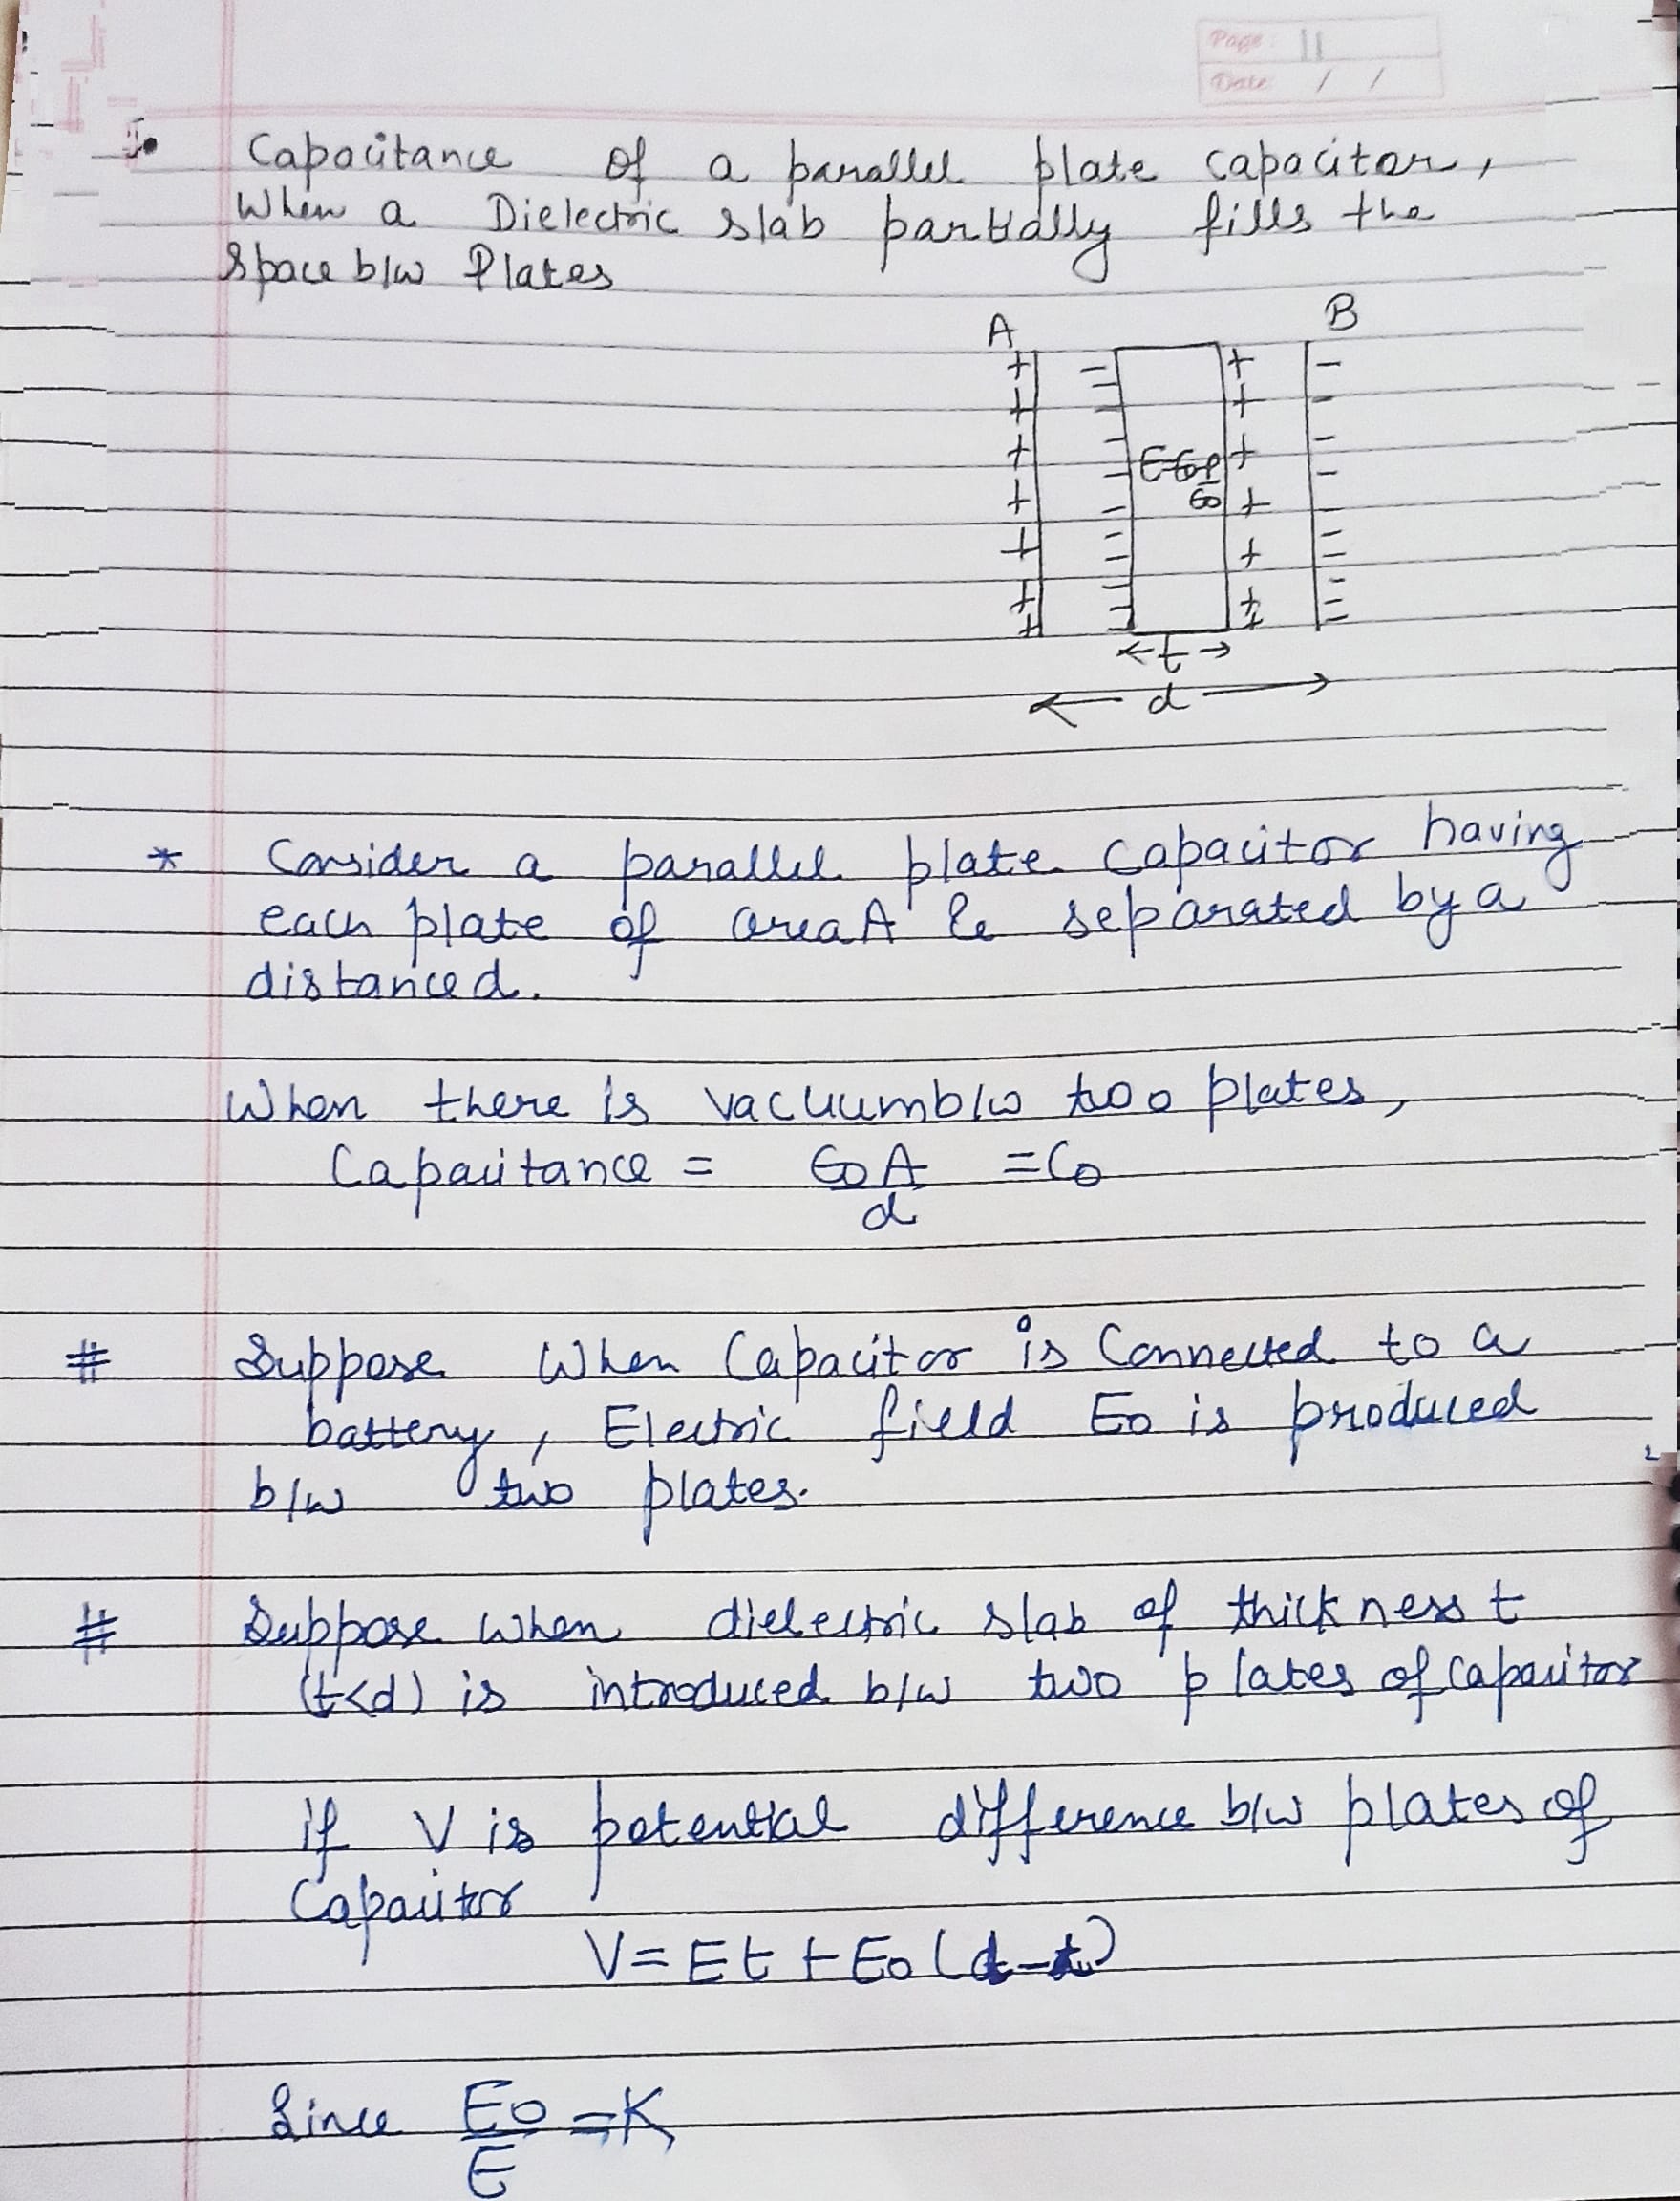 Page: 11
Date / /
Capacitance of a parallel plate capacitor,
When a Dielectric slab partially fills the
Space b/w Plates
A B
+ - + -
E
t
d
* Consider a parallel plate capacitor having
each plate of area A & separated by a
distance d.
When there is vacuum b/w two plates,
Capacitance = ϵ0A/d = C0
# Suppose When Capacitor is Connected to a
battery, Electric field E0 is produced
b/w two plates.
# Suppose when dielectric slab of thickness t
(t<d) is introduced b/w two plates of capacitor
if V is potential difference b/w plates of
Capacitor
V = Et + E0(d-t)
Since E0/E = K